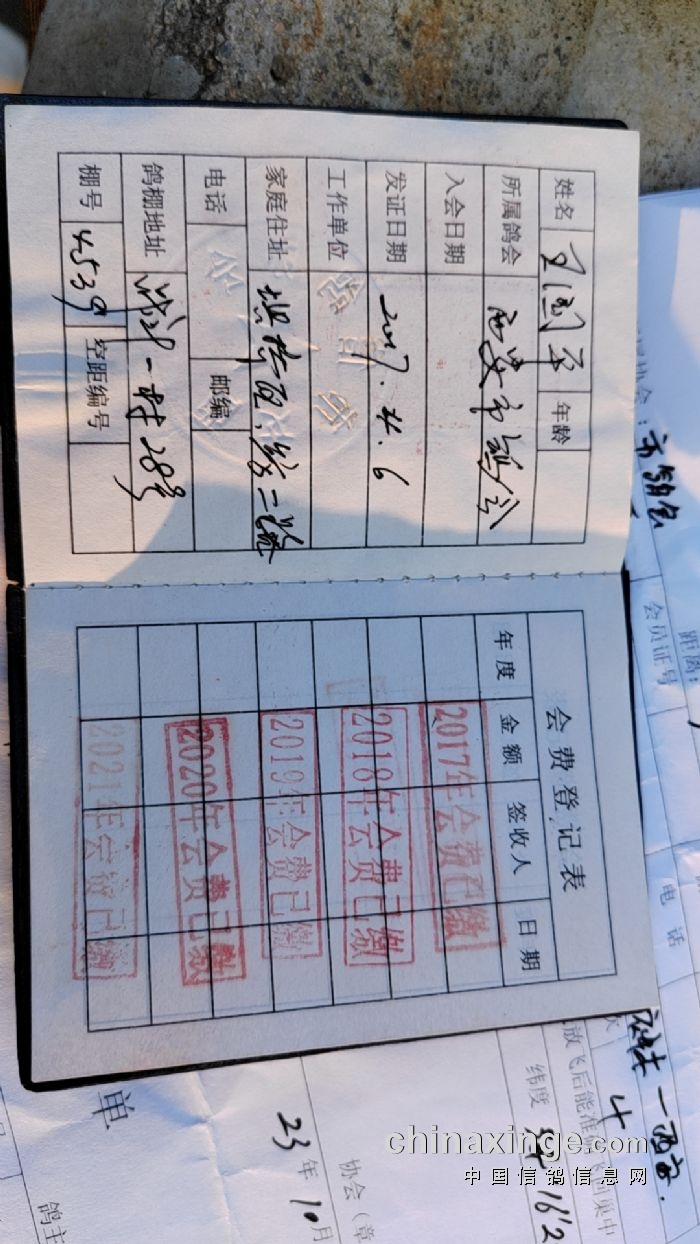 姓名 王国平 年龄
所属鸽会 西安市鸽会
入会日期
发证日期 2017.4.6
工作单位
家庭住址
电话 邮编
鸽棚地址 一村28号
棚号 4539 空距编号
会费登记表
年度 金额 签收人 日期
2017年会费已缴
2018年会费已缴
2019年会费已缴
2020年会费已缴
2021年会费已缴
协会:市鸽会
距离:
会员证号
电话
放飞后能准
回巢中
纬度 34 16'2
协会(章
23年10月
单
鸽主
chinaxinge.com
中国信鸽信息网